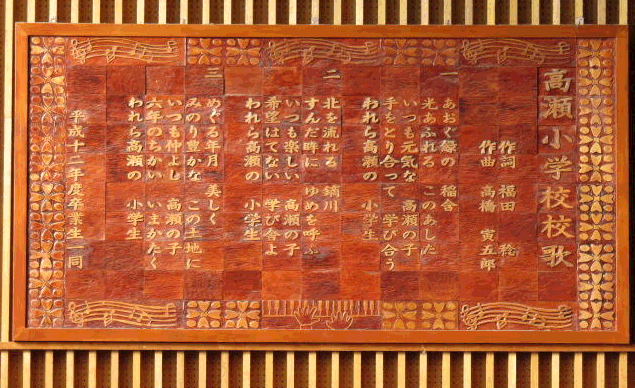 高瀬小学校校歌
作詞 福田 稔
作曲 高橋 寅五郎
一
あおぐ緑の 稲含
光あふれる このあした
いつも元気な 高瀬の子
手をとり合って 学び合う
われら高瀬の 小学生
二
北を流れる 鏑川
すんだ時に ゆめを呼ぶ
いつも楽しい 高瀬の子
希望はてない 学び舎よ
われら高瀬の 小学生
三
めぐる年月 美しく
みのり豊かな この土地に
いつも仲よし 高瀬の子
六年のちかい いまかたく
われら高瀬の 小学生
平成十二年度卒業生一同